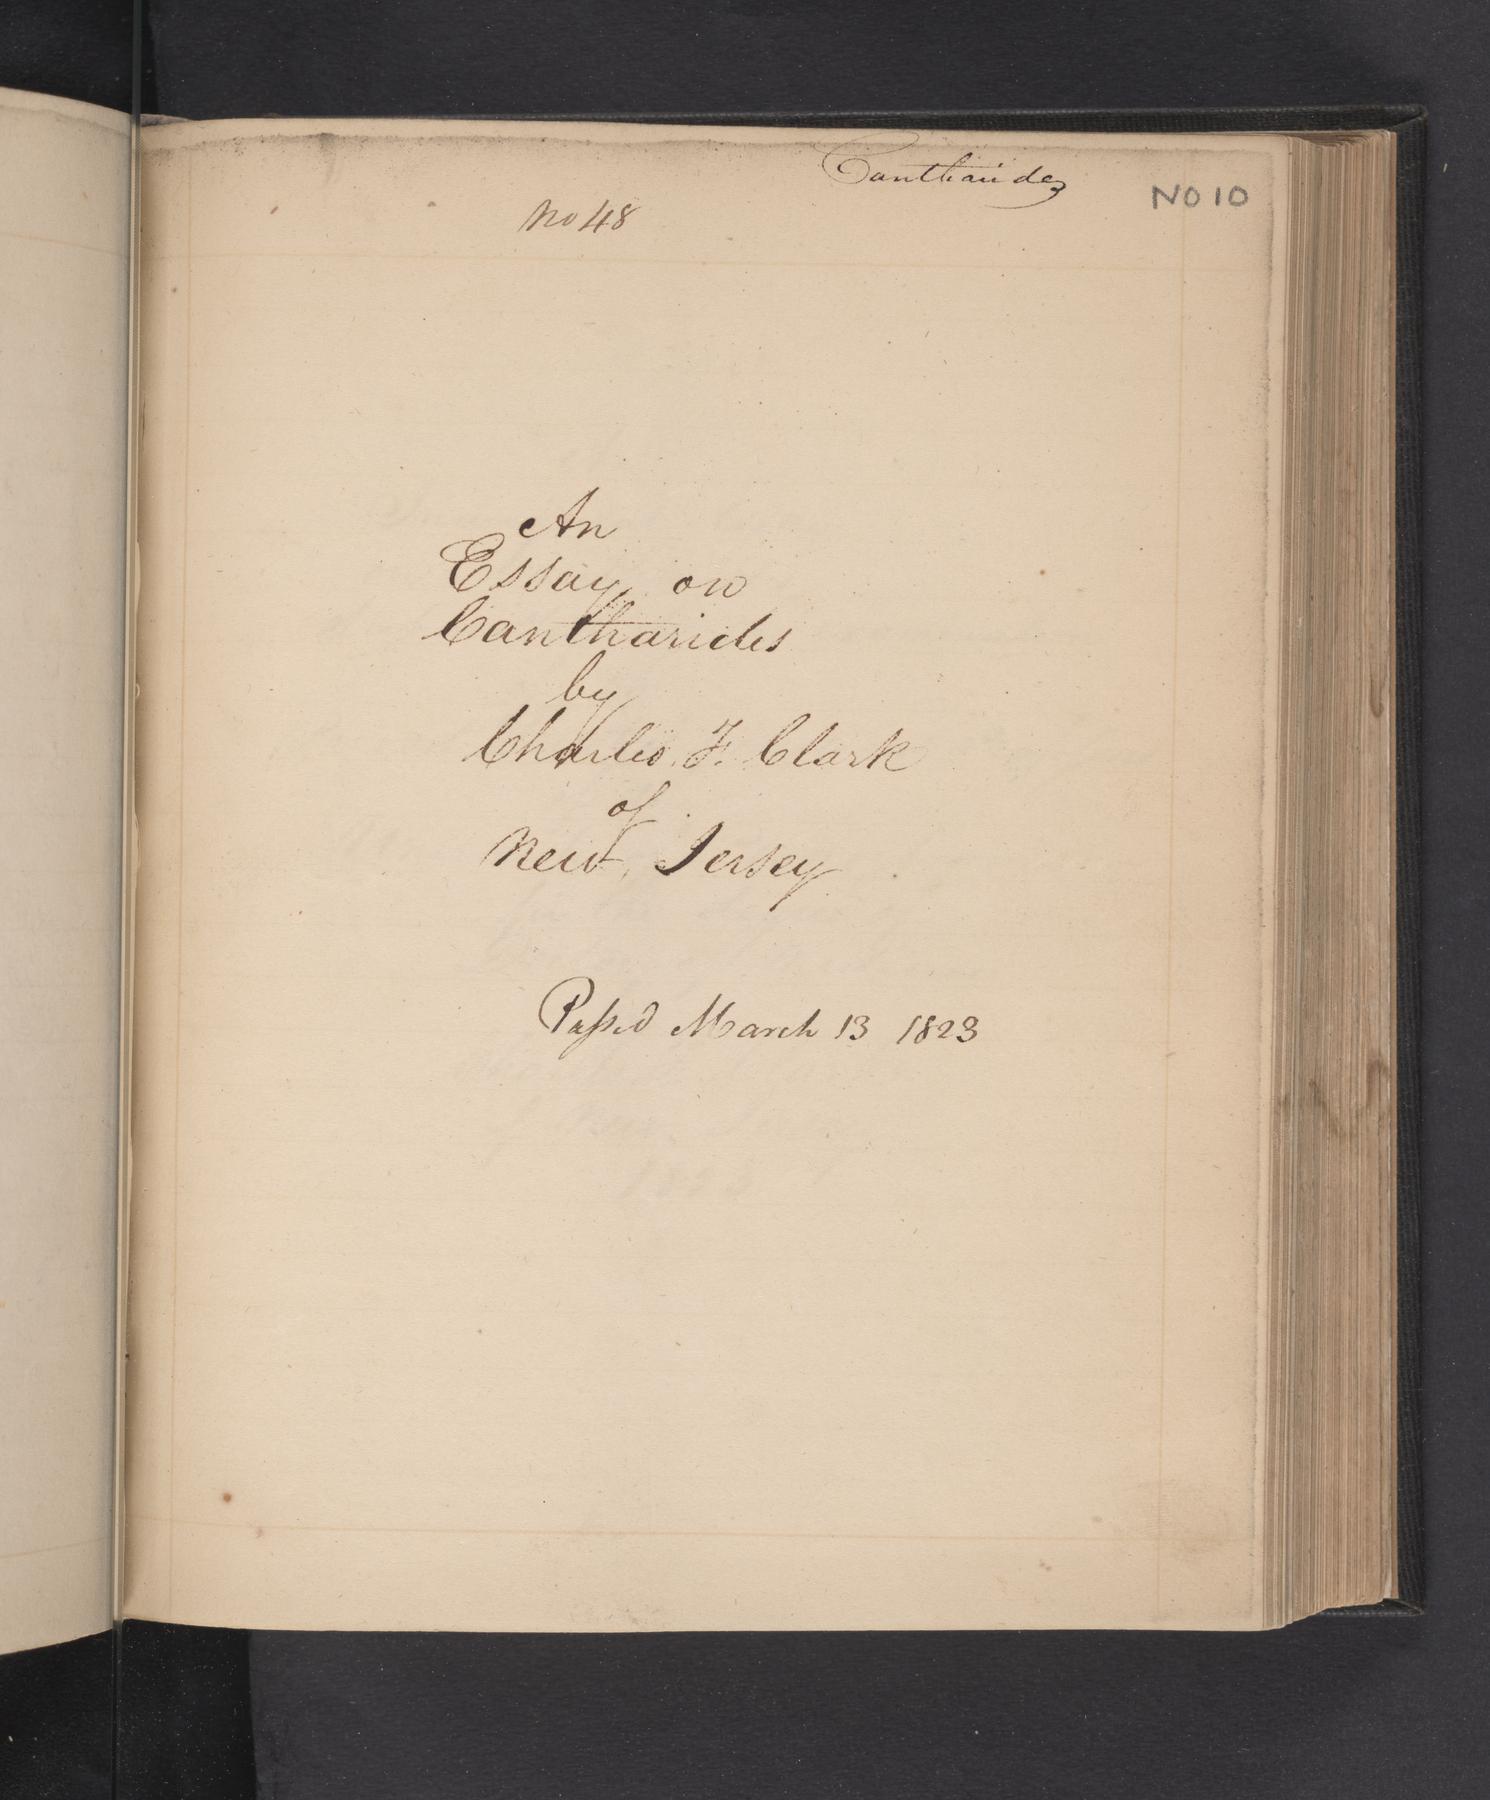 Cantharides
No 10
No 48
An
Essay on
Cantharides
by
Charles. F. Clark
of
New, Jersey
Passed March 13 1823